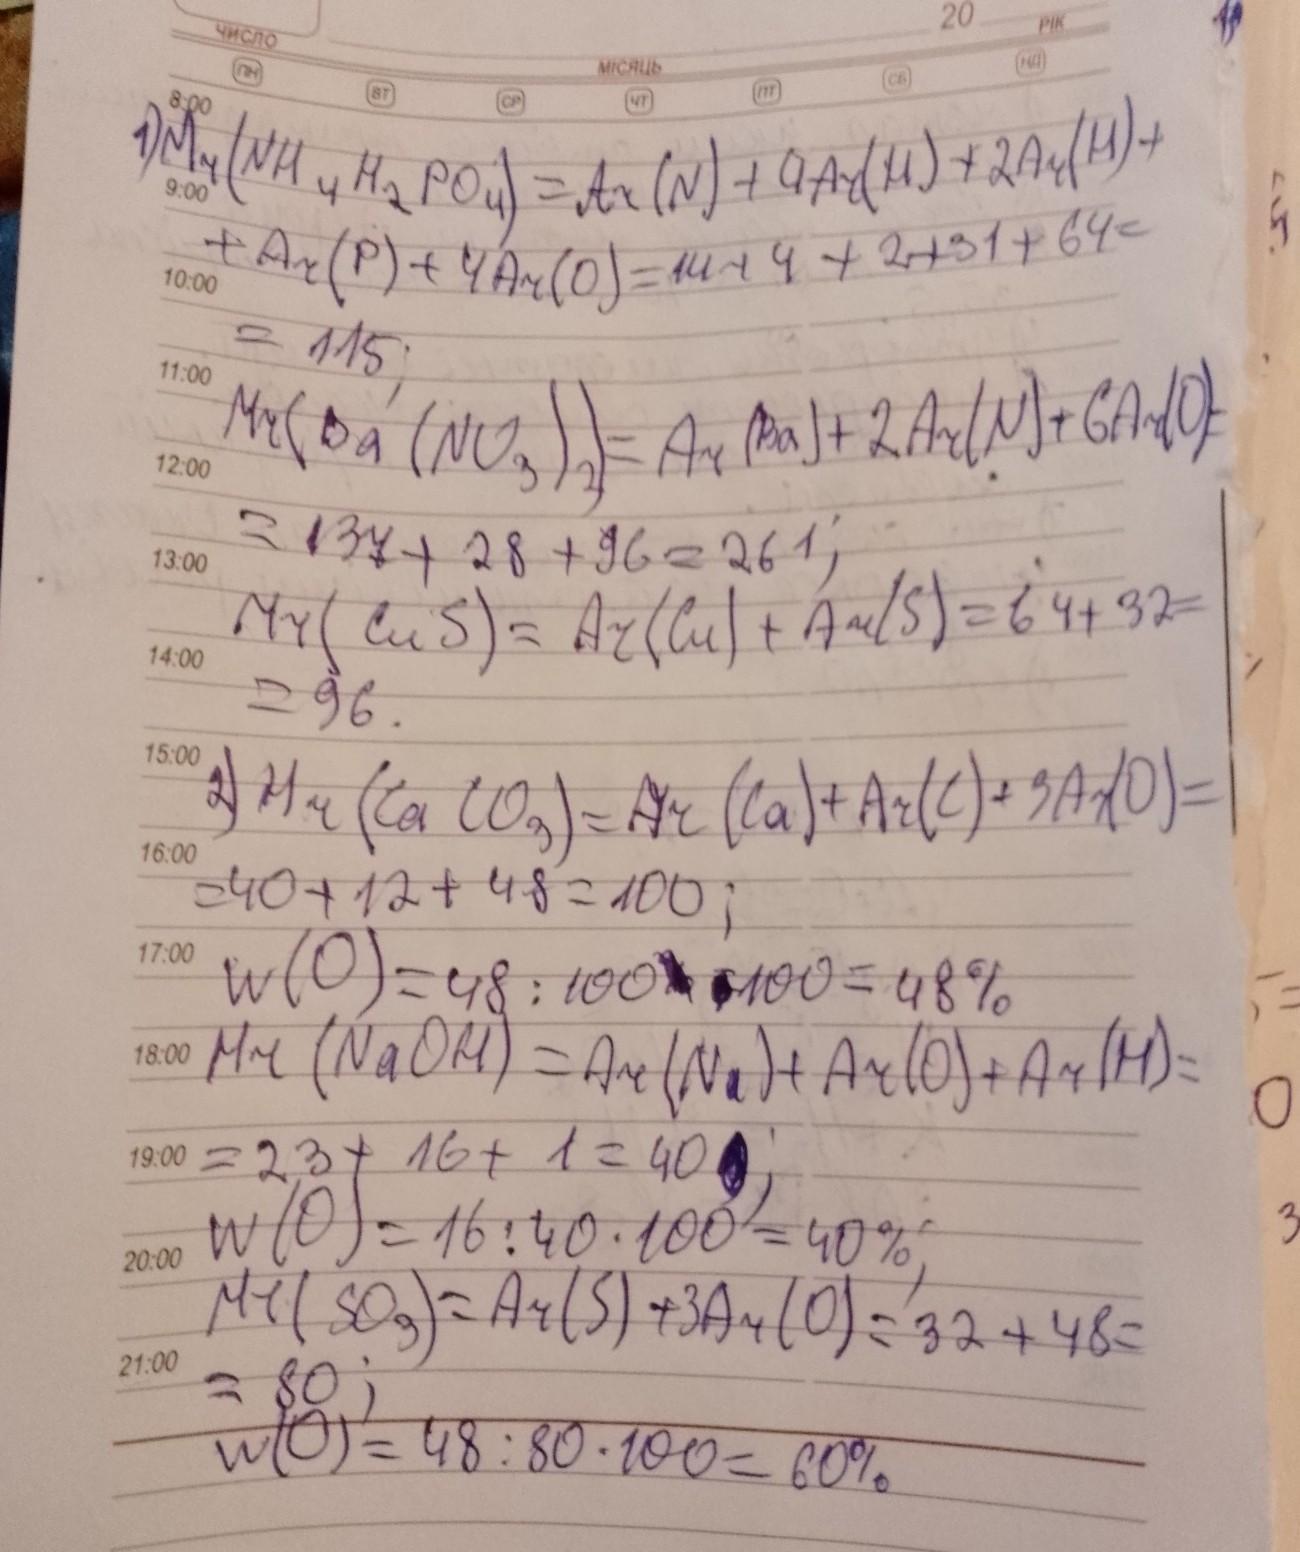 20 РІК
ЧИСЛО
МІСЯЦЬ
ПН ВТ СР ЧТ ПТ СБ НД
8:00
1) Mr(NH4H2PO4) = Ar(N) + 4Ar(H) + 2Ar(H) +
9:00
+ Ar(P) + 4Ar(O) = 14 + 4 + 2 + 31 + 64 =
10:00
= 115;
11:00
Mr(Ba(NO3)2) = Ar(Ba) + 2Ar(N) + 6Ar(O) =
12:00
= 137 + 28 + 96 = 261;
13:00
Mr(CuS) = Ar(Cu) + Ar(S) = 64 + 32 =
14:00
= 96.
15:00
2) Mr(CaCO3) = Ar(Ca) + Ar(C) + 3Ar(O) =
16:00
= 40 + 12 + 48 = 100;
17:00
w(O) = 48 : 100 · 100 = 48%
18:00 Mr(NaOH) = Ar(Na) + Ar(O) + Ar(H) =
19:00 = 23 + 16 + 1 = 40;
w(O) = 16 : 40 · 100 = 40%;
20:00
Mr(SO3) = Ar(S) + 3Ar(O) = 32 + 48 =
21:00
= 80;
w(O) = 48 : 80 · 100 = 60%